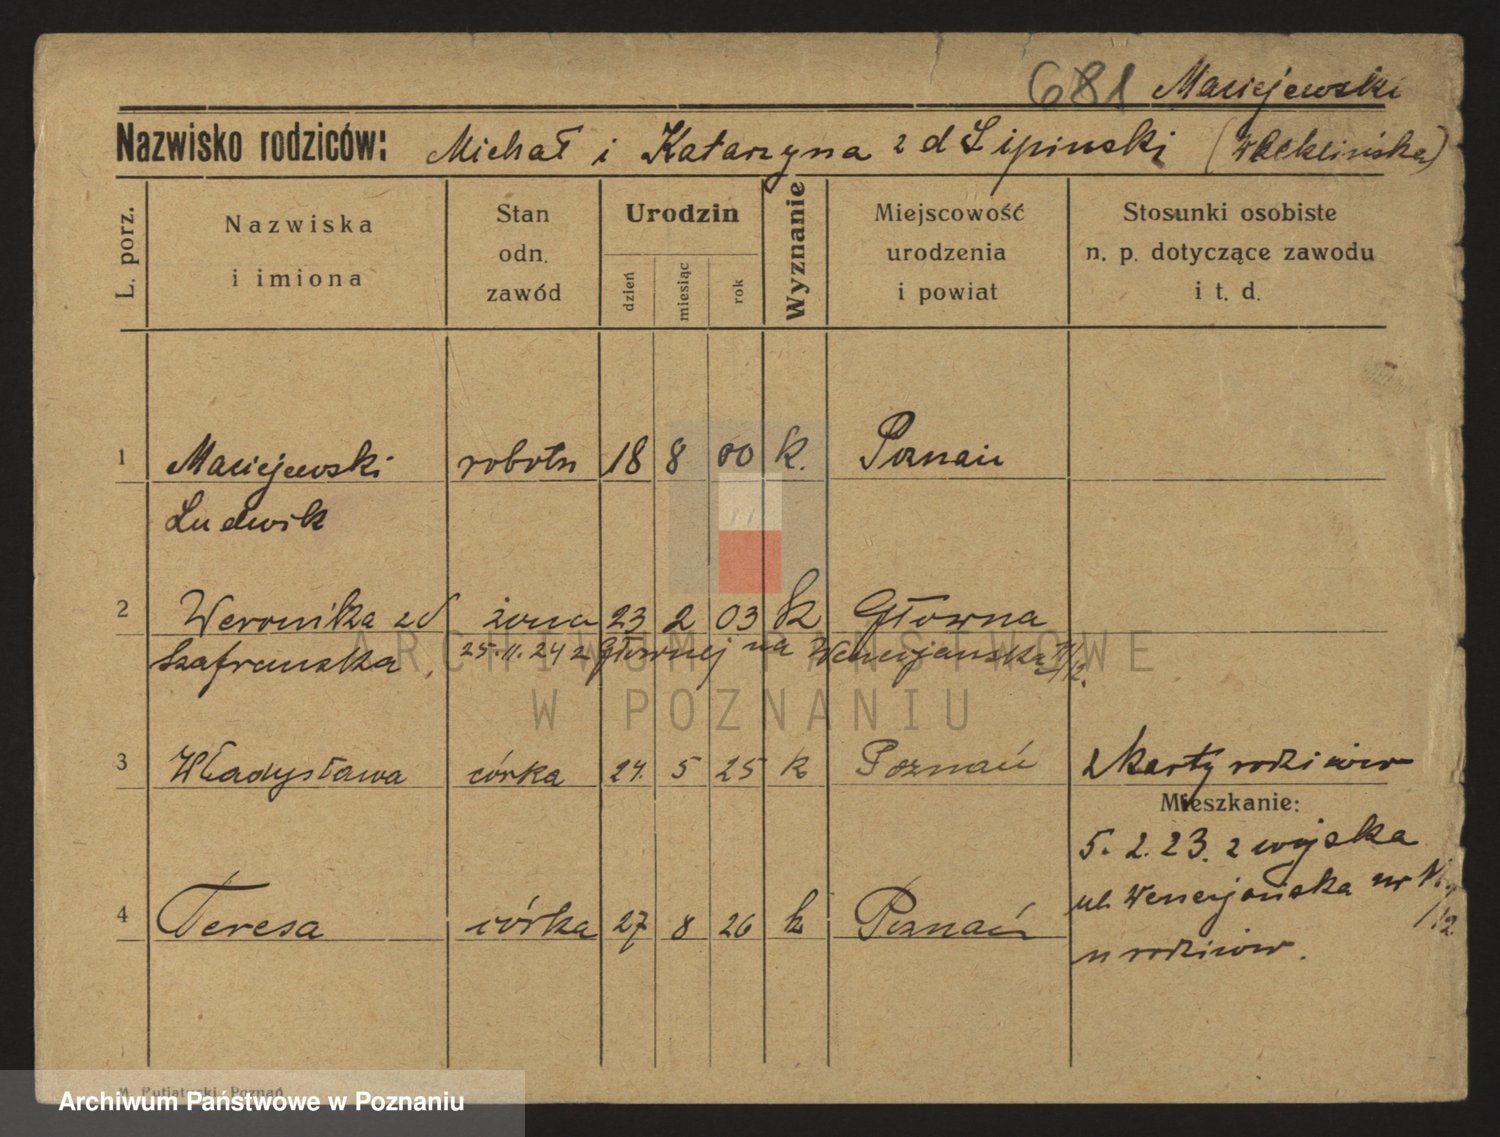 681 Maciejewski
Nazwisko rodziców: Michał i Katarzyna z d Lipinski
L. porz.
Nazwiska
i imiona
Stan
odn.
zawód
Urodzin
dzień
miesiąc
rok
Wyznanie
Miejscowość
urodzenia
i powiat
Stosunki osobiste
n. p. dotyczące zawodu
i t. d.
1 Maciejewski robotn 18 8 00 k. Poznań
Ludwik
2 Weronika z d żona 23 2 03 k Głowna
Szafranska 25.11.24 z Głownej na Wenecjanska
ARCHIWUM PAŃSTWOWE
W POZNANIU
3 Władysława córka 24. 5 25 k Poznań z karty rodziców
Mieszkanie:
5. 2. 23. z wojska
ul Wenecjańska nr
4 Teresa córka 27 8 26 k Poznań
u rodziców.
Poznań
Archiwum Państwowe w Poznaniu